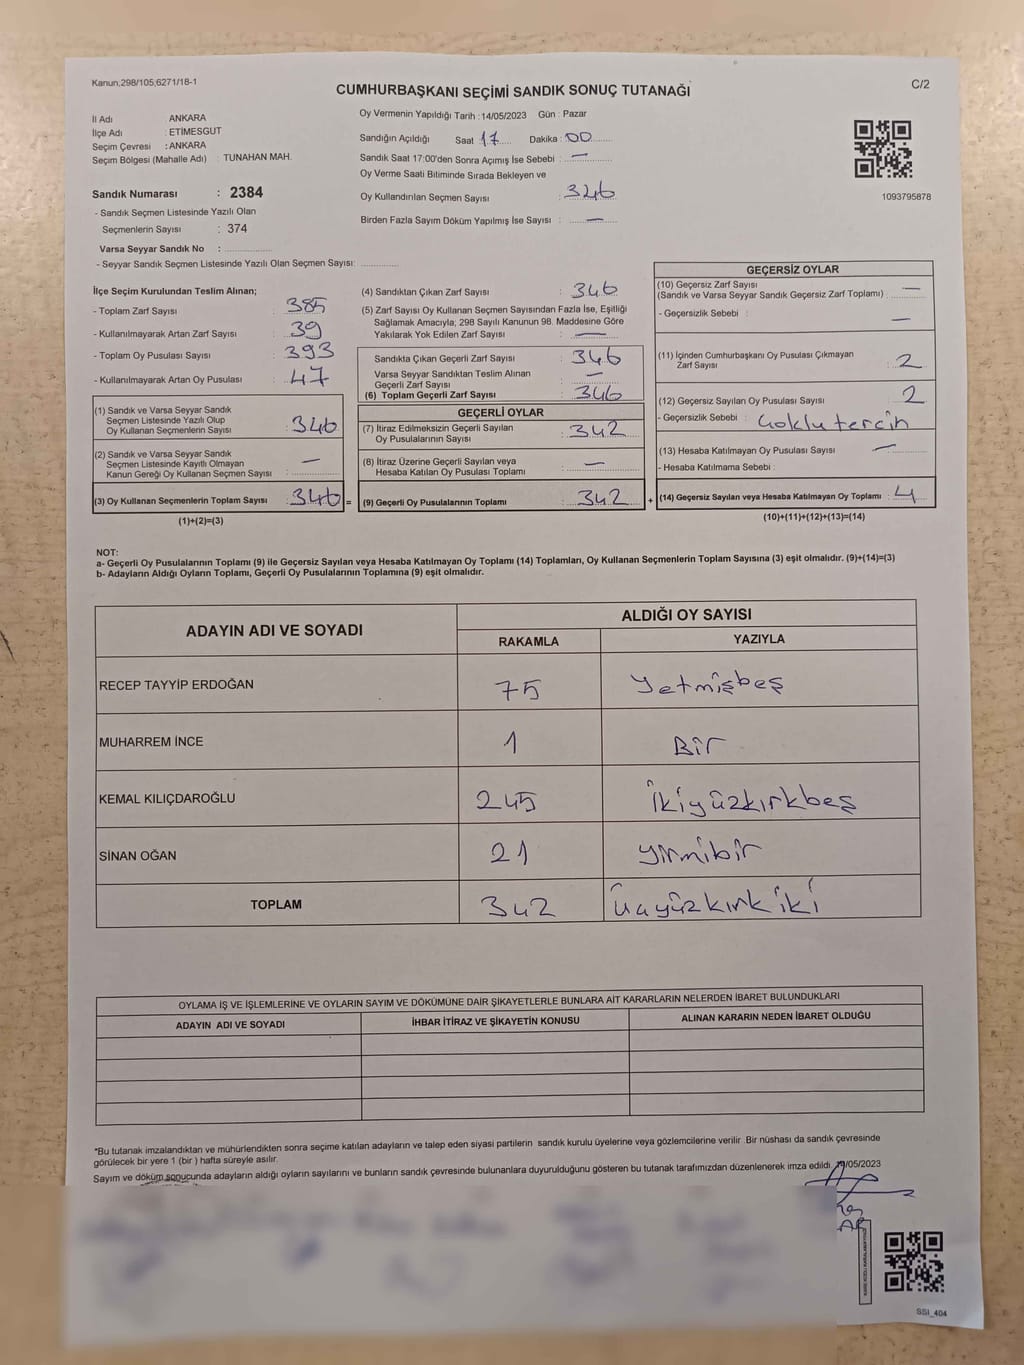 Kanun;298/105;6271/18-1
CUMHURBAŞKANI SEÇİMİ SANDIK SONUÇ TUTANAĞI
C/2
İl Adı ANKARA
İlçe Adı : ETİMESGUT
Seçim Çevresi : ANKARA
Seçim Bölgesi (Mahalle Adı) : TUNAHAN MAH.
Sandık Numarası : 2384
- Sandık Seçmen Listesinde Yazılı Olan
Seçmenlerin Sayısı : 374
Varsa Seyyar Sandık No :
- Seyyar Sandık Seçmen Listesinde Yazılı Olan Seçmen Sayısı:
Oy Vermenin Yapıldığı Tarih : 14/05/2023 Gün : Pazar
Sandığın Açıldığı Saat 17 Dakika : 00
Sandık Saat 17:00'den Sonra Açımış İse Sebebi : —
Oy Verme Saati Bitiminde Sırada Bekleyen ve
Oy Kullandırılan Seçmen Sayısı : 346
Birden Fazla Sayım Döküm Yapılmış İse Sayısı : —
1093795878
İlçe Seçim Kurulundan Teslim Alınan;
- Toplam Zarf Sayısı : 385
- Kullanılmayarak Artan Zarf Sayısı : 39
- Toplam Oy Pusulası Sayısı : 393
- Kullanılmayarak Artan Oy Pusulası : 47
(1) Sandık ve Varsa Seyyar Sandık
Seçmen Listesinde Yazılı Olup
Oy Kullanan Seçmenlerin Sayısı : 346
(2) Sandık ve Varsa Seyyar Sandık
Seçmen Listesinde Kayıtlı Olmayan
Kanun Gereği Oy Kullanan Seçmen Sayısı : —
(3) Oy Kullanan Seçmenlerin Toplam Sayısı : 346 =
(1)+(2)=(3)
(4) Sandıktan Çıkan Zarf Sayısı : 346
(5) Zarf Sayısı Oy Kullanan Seçmen Sayısından Fazla İse, Eşitliği
Sağlamak Amacıyla; 298 Sayılı Kanunun 98. Maddesine Göre
Yakılarak Yok Edilen Zarf Sayısı : —
Sandıkta Çıkan Geçerli Zarf Sayısı : 346
Varsa Seyyar Sandıktan Teslim Alınan
Geçerli Zarf Sayısı : —
(6) Toplam Geçerli Zarf Sayısı : 346
GEÇERLİ OYLAR
(7) İtiraz Edilmeksizin Geçerli Sayılan
Oy Pusulalarının Sayısı : 342
(8) İtiraz Üzerine Geçerli Sayılan veya
Hesaba Katılan Oy Pusulası Toplamı : —
(9) Geçerli Oy Pusulalarının Toplamı : 342 +
GEÇERSİZ OYLAR
(10) Geçersiz Zarf Sayısı
(Sandık ve Varsa Seyyar Sandık Geçersiz Zarf Toplamı) : —
- Geçersizlik Sebebi : —
(11) İçinden Cumhurbaşkanı Oy Pusulası Çıkmayan
Zarf Sayısı : 2
(12) Geçersiz Sayılan Oy Pusulası Sayısı : 2
- Geçersizlik Sebebi : Çoklu tercih
(13) Hesaba Katılmayan Oy Pusulası Sayısı : —
- Hesaba Katılmama Sebebi :
(14) Geçersiz Sayılan veya Hesaba Katılmayan Oy Toplamı : 4
(10)+(11)+(12)+(13)=(14)
NOT:
a- Geçerli Oy Pusulalarının Toplamı (9) ile Geçersiz Sayılan veya Hesaba Katılmayan Oy Toplamı (14) Toplamları, Oy Kullanan Seçmenlerin Toplam Sayısına (3) eşit olmalıdır. (9)+(14)=(3)
b- Adayların Aldığı Oyların Toplamı, Geçerli Oy Pusulalarının Toplamına (9) eşit olmalıdır.
ADAYIN ADI VE SOYADI
ALDIĞI OY SAYISI
RAKAMLA YAZIYLA
RECEP TAYYİP ERDOĞAN 75 Yetmişbeş
MUHARREM İNCE 1 Bir
KEMAL KILIÇDAROĞLU 245 İkiyüzkırkbeş
SİNAN OĞAN 21 yirmibir
TOPLAM 342 üçyüzkırkiki
OYLAMA İŞ VE İŞLEMLERİNE VE OYLARIN SAYIM VE DÖKÜMÜNE DAİR ŞİKAYETLERLE BUNLARA AİT KARARLARIN NELERDEN İBARET BULUNDUKLARI
ADAYIN ADI VE SOYADI İHBAR İTİRAZ VE ŞİKAYETİN KONUSU ALINAN KARARIN NEDEN İBARET OLDUĞU
*Bu tutanak imzalandıktan ve mühürlendikten sonra seçime katılan adayların ve talep eden siyasi partilerin sandık kurulu üyelerine veya gözlemcilerine verilir. Bir nüshası da sandık çevresinde
görülecek bir yere 1 (bir ) hafta süreyle asılır.
Sayım ve döküm sonucunda adayların aldığı oyların sayılarını ve bunların sandık çevresinde bulunanlara duyurulduğunu gösteren bu tutanak tarafımızdan düzenlenerek imza edildi. /05/2023
SSI_404